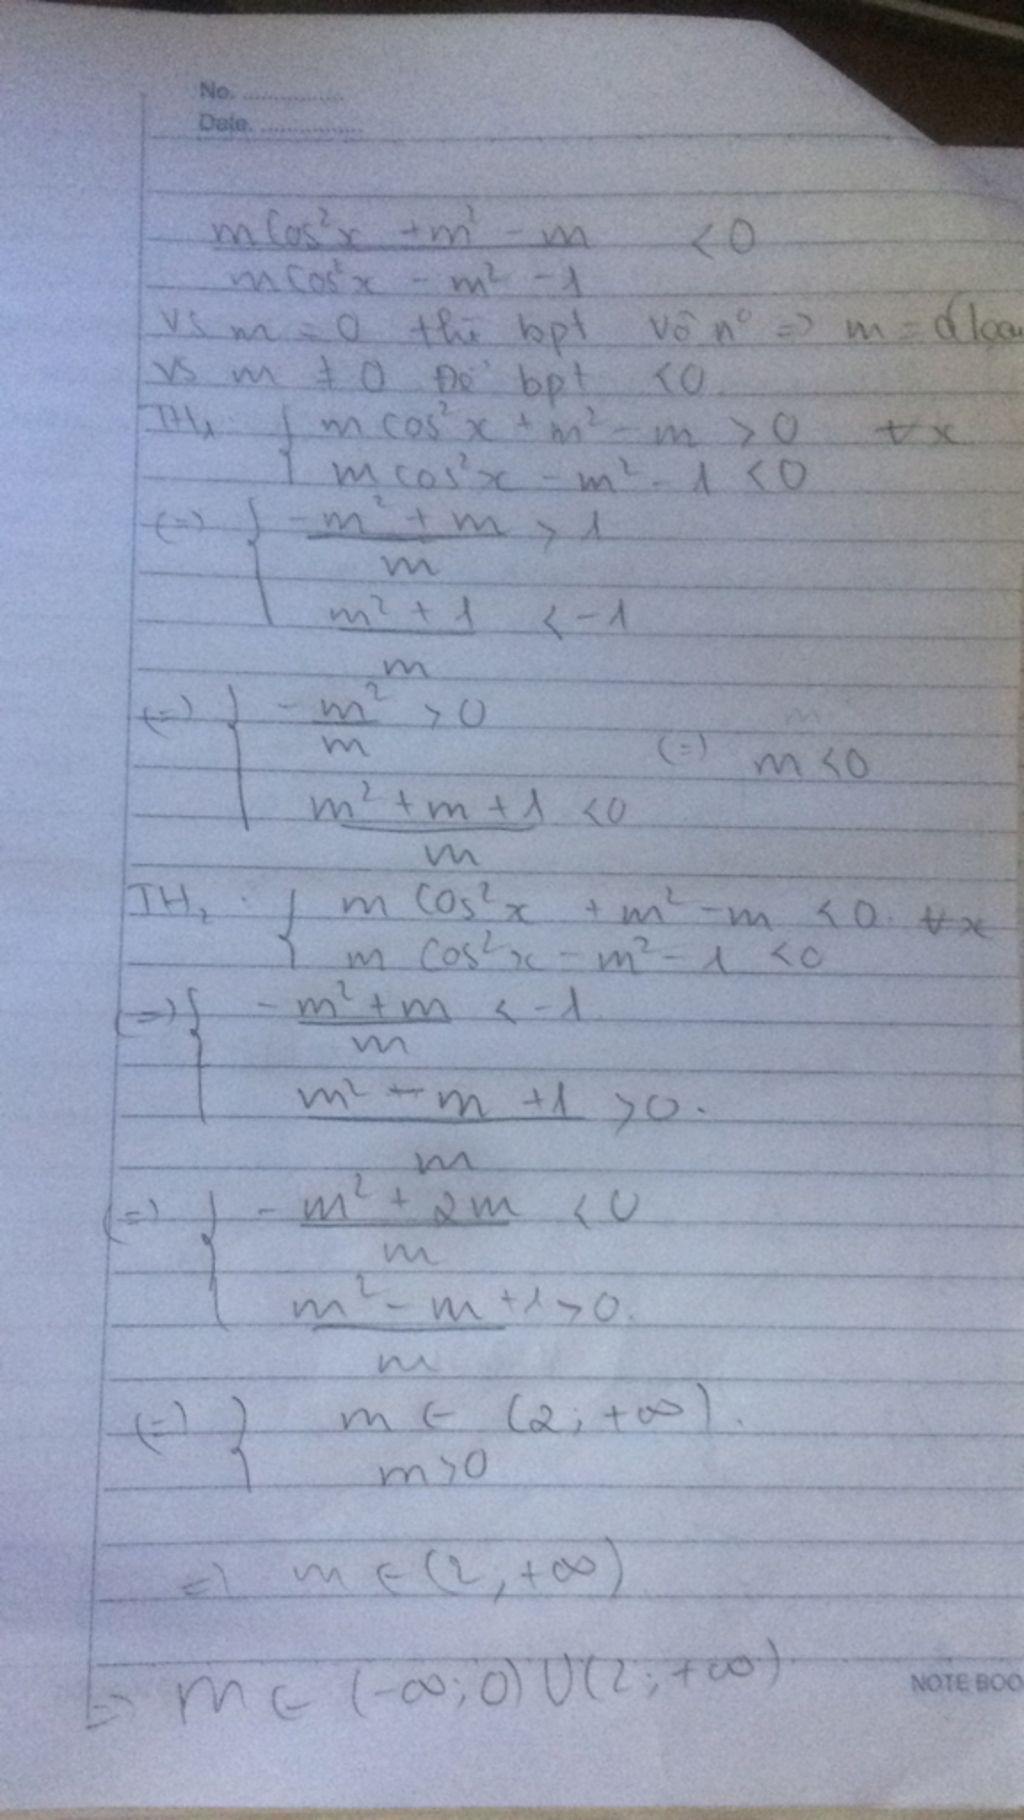 No. ................
Date. ................
m cos²x + m² - m < 0
m cos²x - m² - 1
vs m = 0 thì bpt vô n° => m = 0 loại
vs m ≠ 0 Để bpt < 0
TH₁: { m cos²x + m² - m > 0 ∀x
m cos²x - m² - 1 < 0
(=) { -m² + m > 1
m
m² + 1 < -1
m
(=) { -m² > 0
m
(=) m < 0
m² + m + 1 < 0
m
TH₂: { m cos²x + m² - m < 0 ∀x
m cos²x - m² - 1 < 0
(=) { -m² + m < -1
m
m² - m + 1 > 0.
m
(=) { -m² + 2m < 0
m
m² - m + 1 > 0.
m
(=) } m ∈ (2; +∞).
m > 0
=> m ∈ (2, +∞)
=> m ∈ (-∞; 0) ∪ (2; +∞)
NOTE BOO